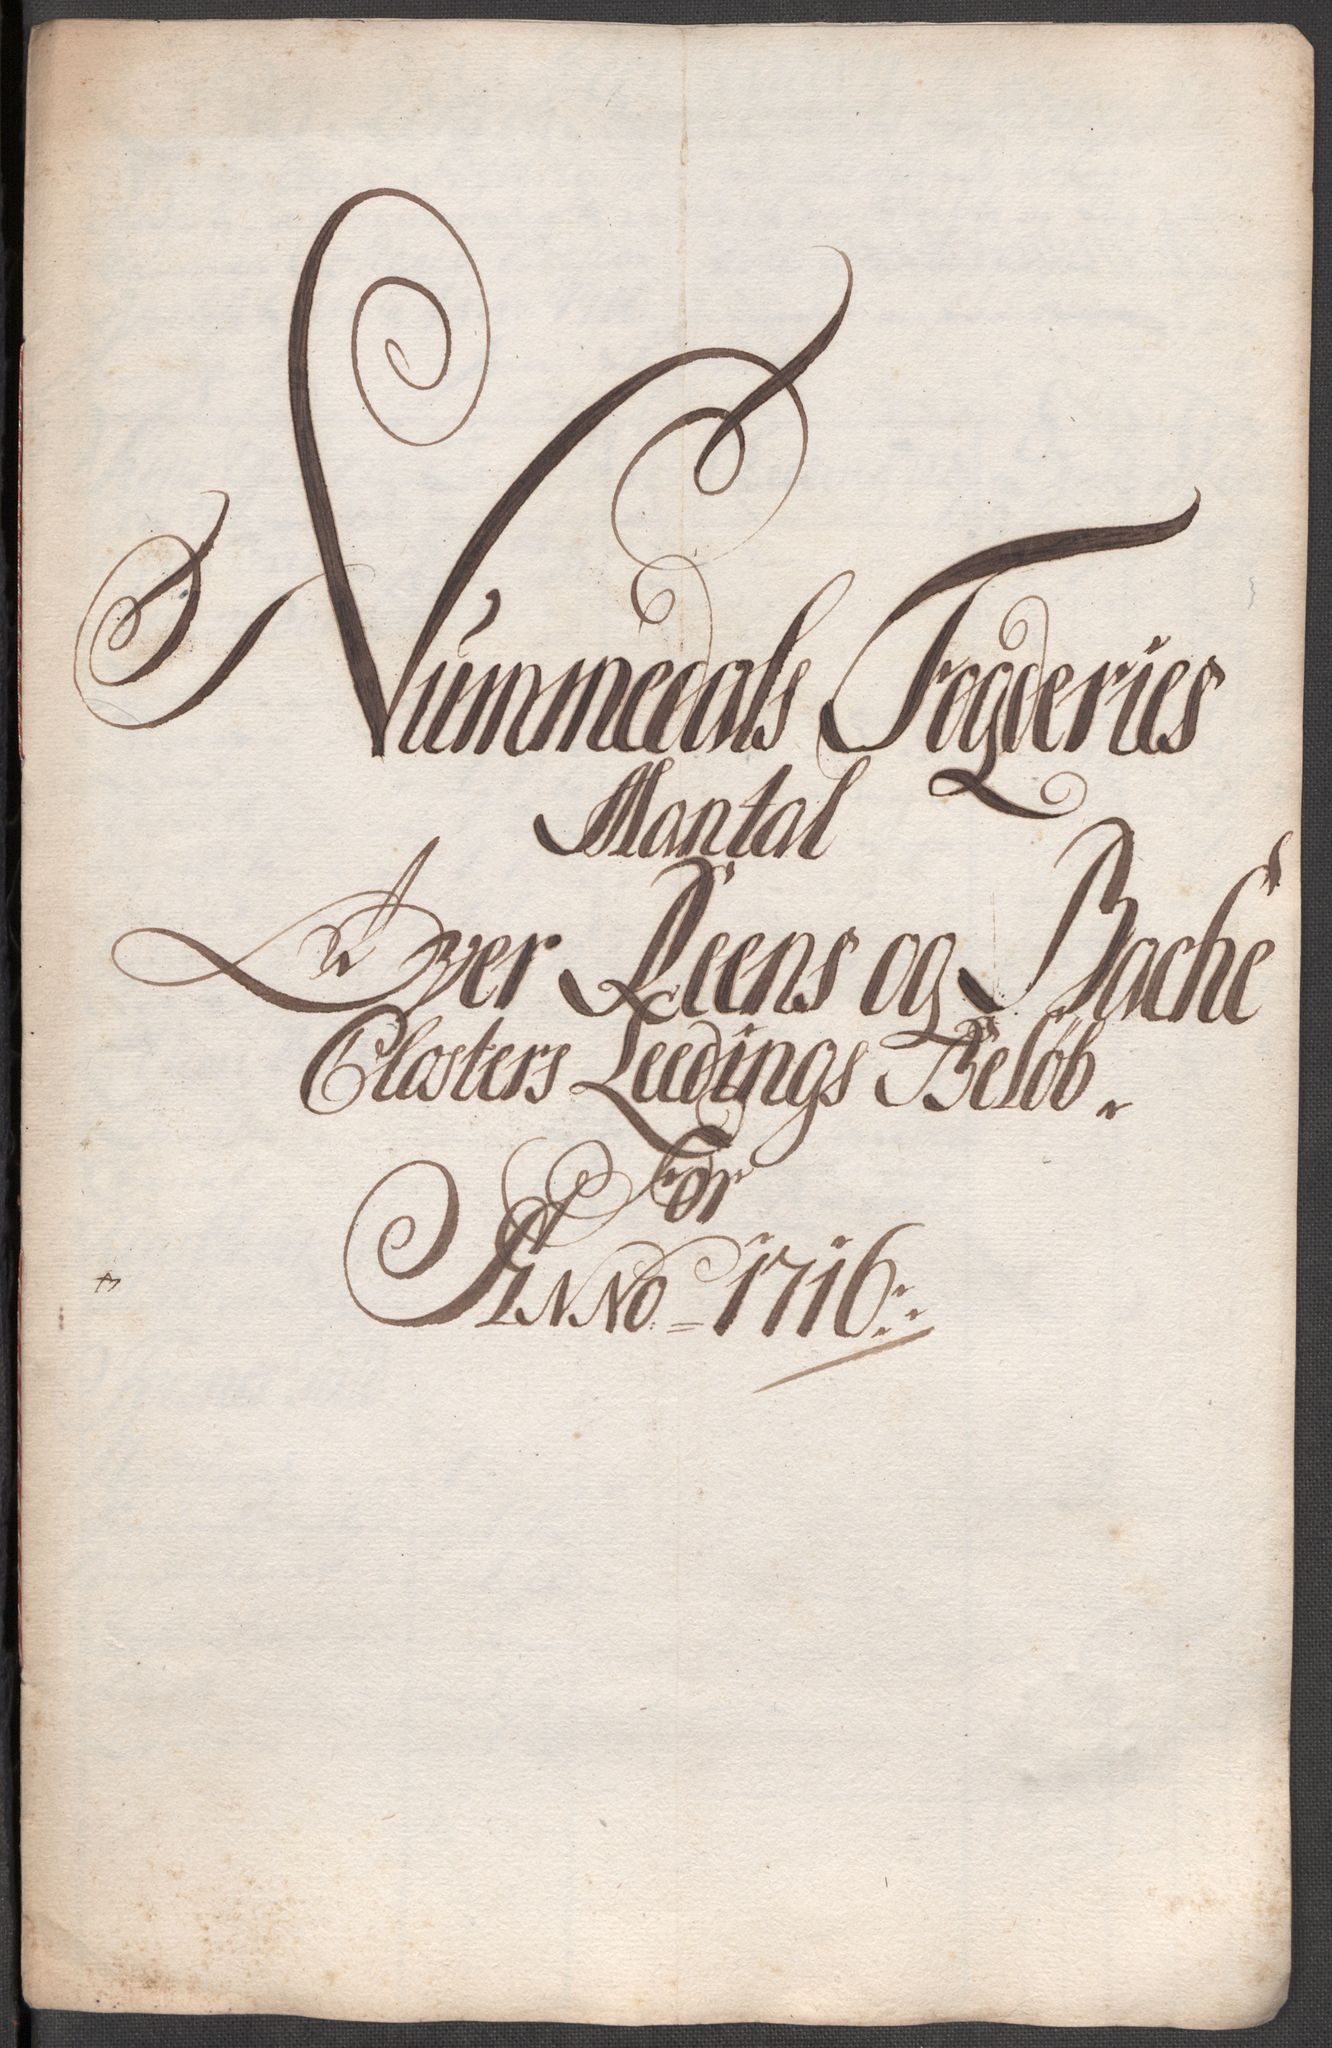 Nummedals Fogderies
Mantal
Over Reens og Bache
Closters Leedings Beløb.
For
Anno 1716